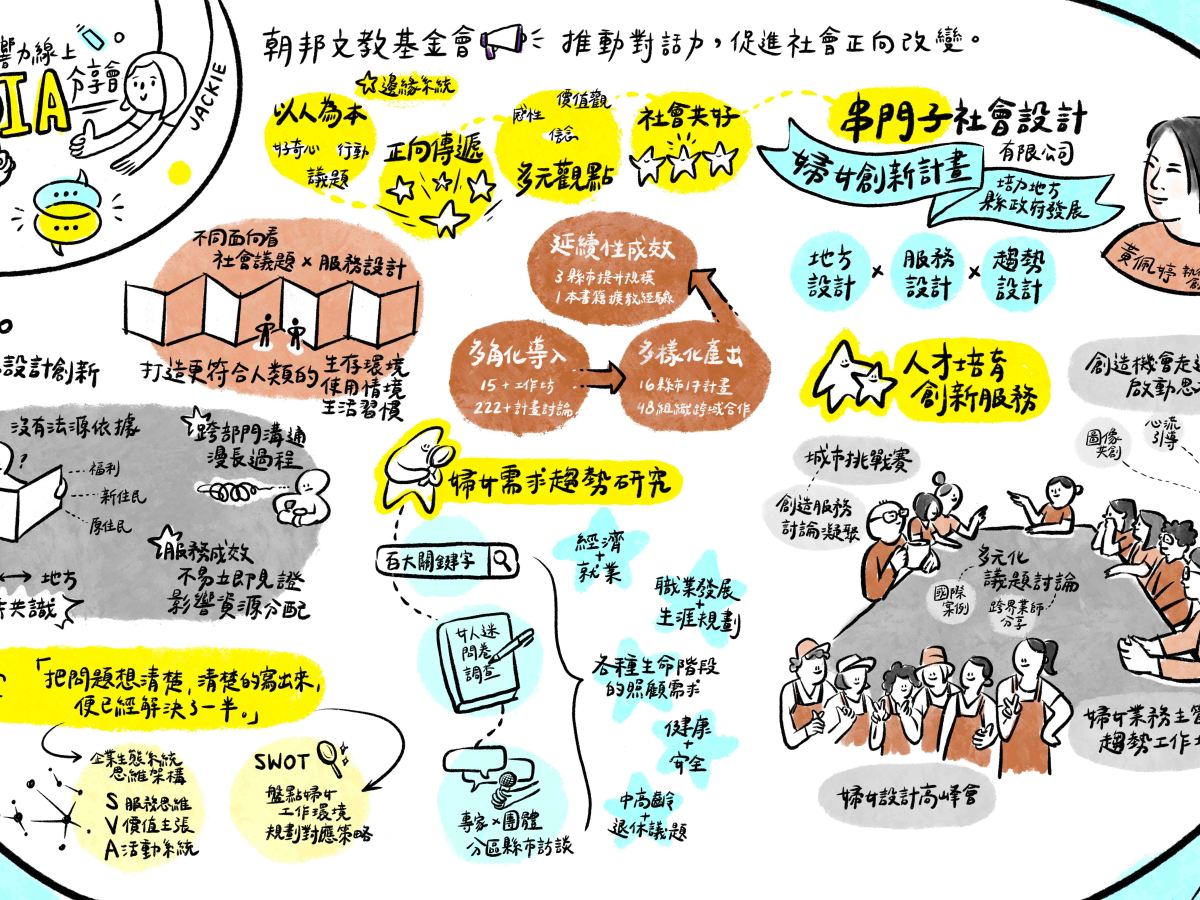 響力線上
分享會
DIA
JACKIE
朝邦文教基金會
推動對話力,促進社會正向改變。
以人為本
好奇心 行動
議題
邊緣系統
正向傳遞
感性
價值觀
信念
多元觀點
社會共好
串門子社會設計
有限公司
婦女創新計畫
培力地方
縣政府發展
黃佩婷 執
地方
設計
×
服務
設計
×
趨勢
設計
不同面向看
社會議題×服務設計
打造更符合人類的
生存環境
使用情境
生活習慣
設計創新
延續性成效
3縣市提升規模
1本書籍擴散經驗
多角化導入
15+工作坊
222+計畫討論
多樣化產出
16縣市17計畫
48組織跨域合作
人才培育
創新服務
創造機會走
啟動思
圖像
共創
心流
引導
沒有法源依據
?
福利
新住民
原住民
跨部門溝通
漫長過程
服務成效
不易立即見證
影響資源分配
地方
共識
婦女需求趨勢研究
百大關鍵字
女人迷
問卷
調查
專家×團體
分區縣市訪談
經濟
+
就業
職業發展
+
生涯規劃
各種生命階段
的照顧需求
健康
+
安全
中高齡
+
退休議題
城市挑戰賽
創造服務
討論凝聚
多元化
議題討論
國際
案例
跨界業師
分享
婦女業務主管
趨勢工作
婦女設計高峰會
「把問題想清楚,清楚的寫出來,
便已經解決了一半。」
企業生態系統
思維架構
S 服務思維
V 價值主張
A 活動系統
SWOT
盤點婦女
工作環境
規劃對應策略